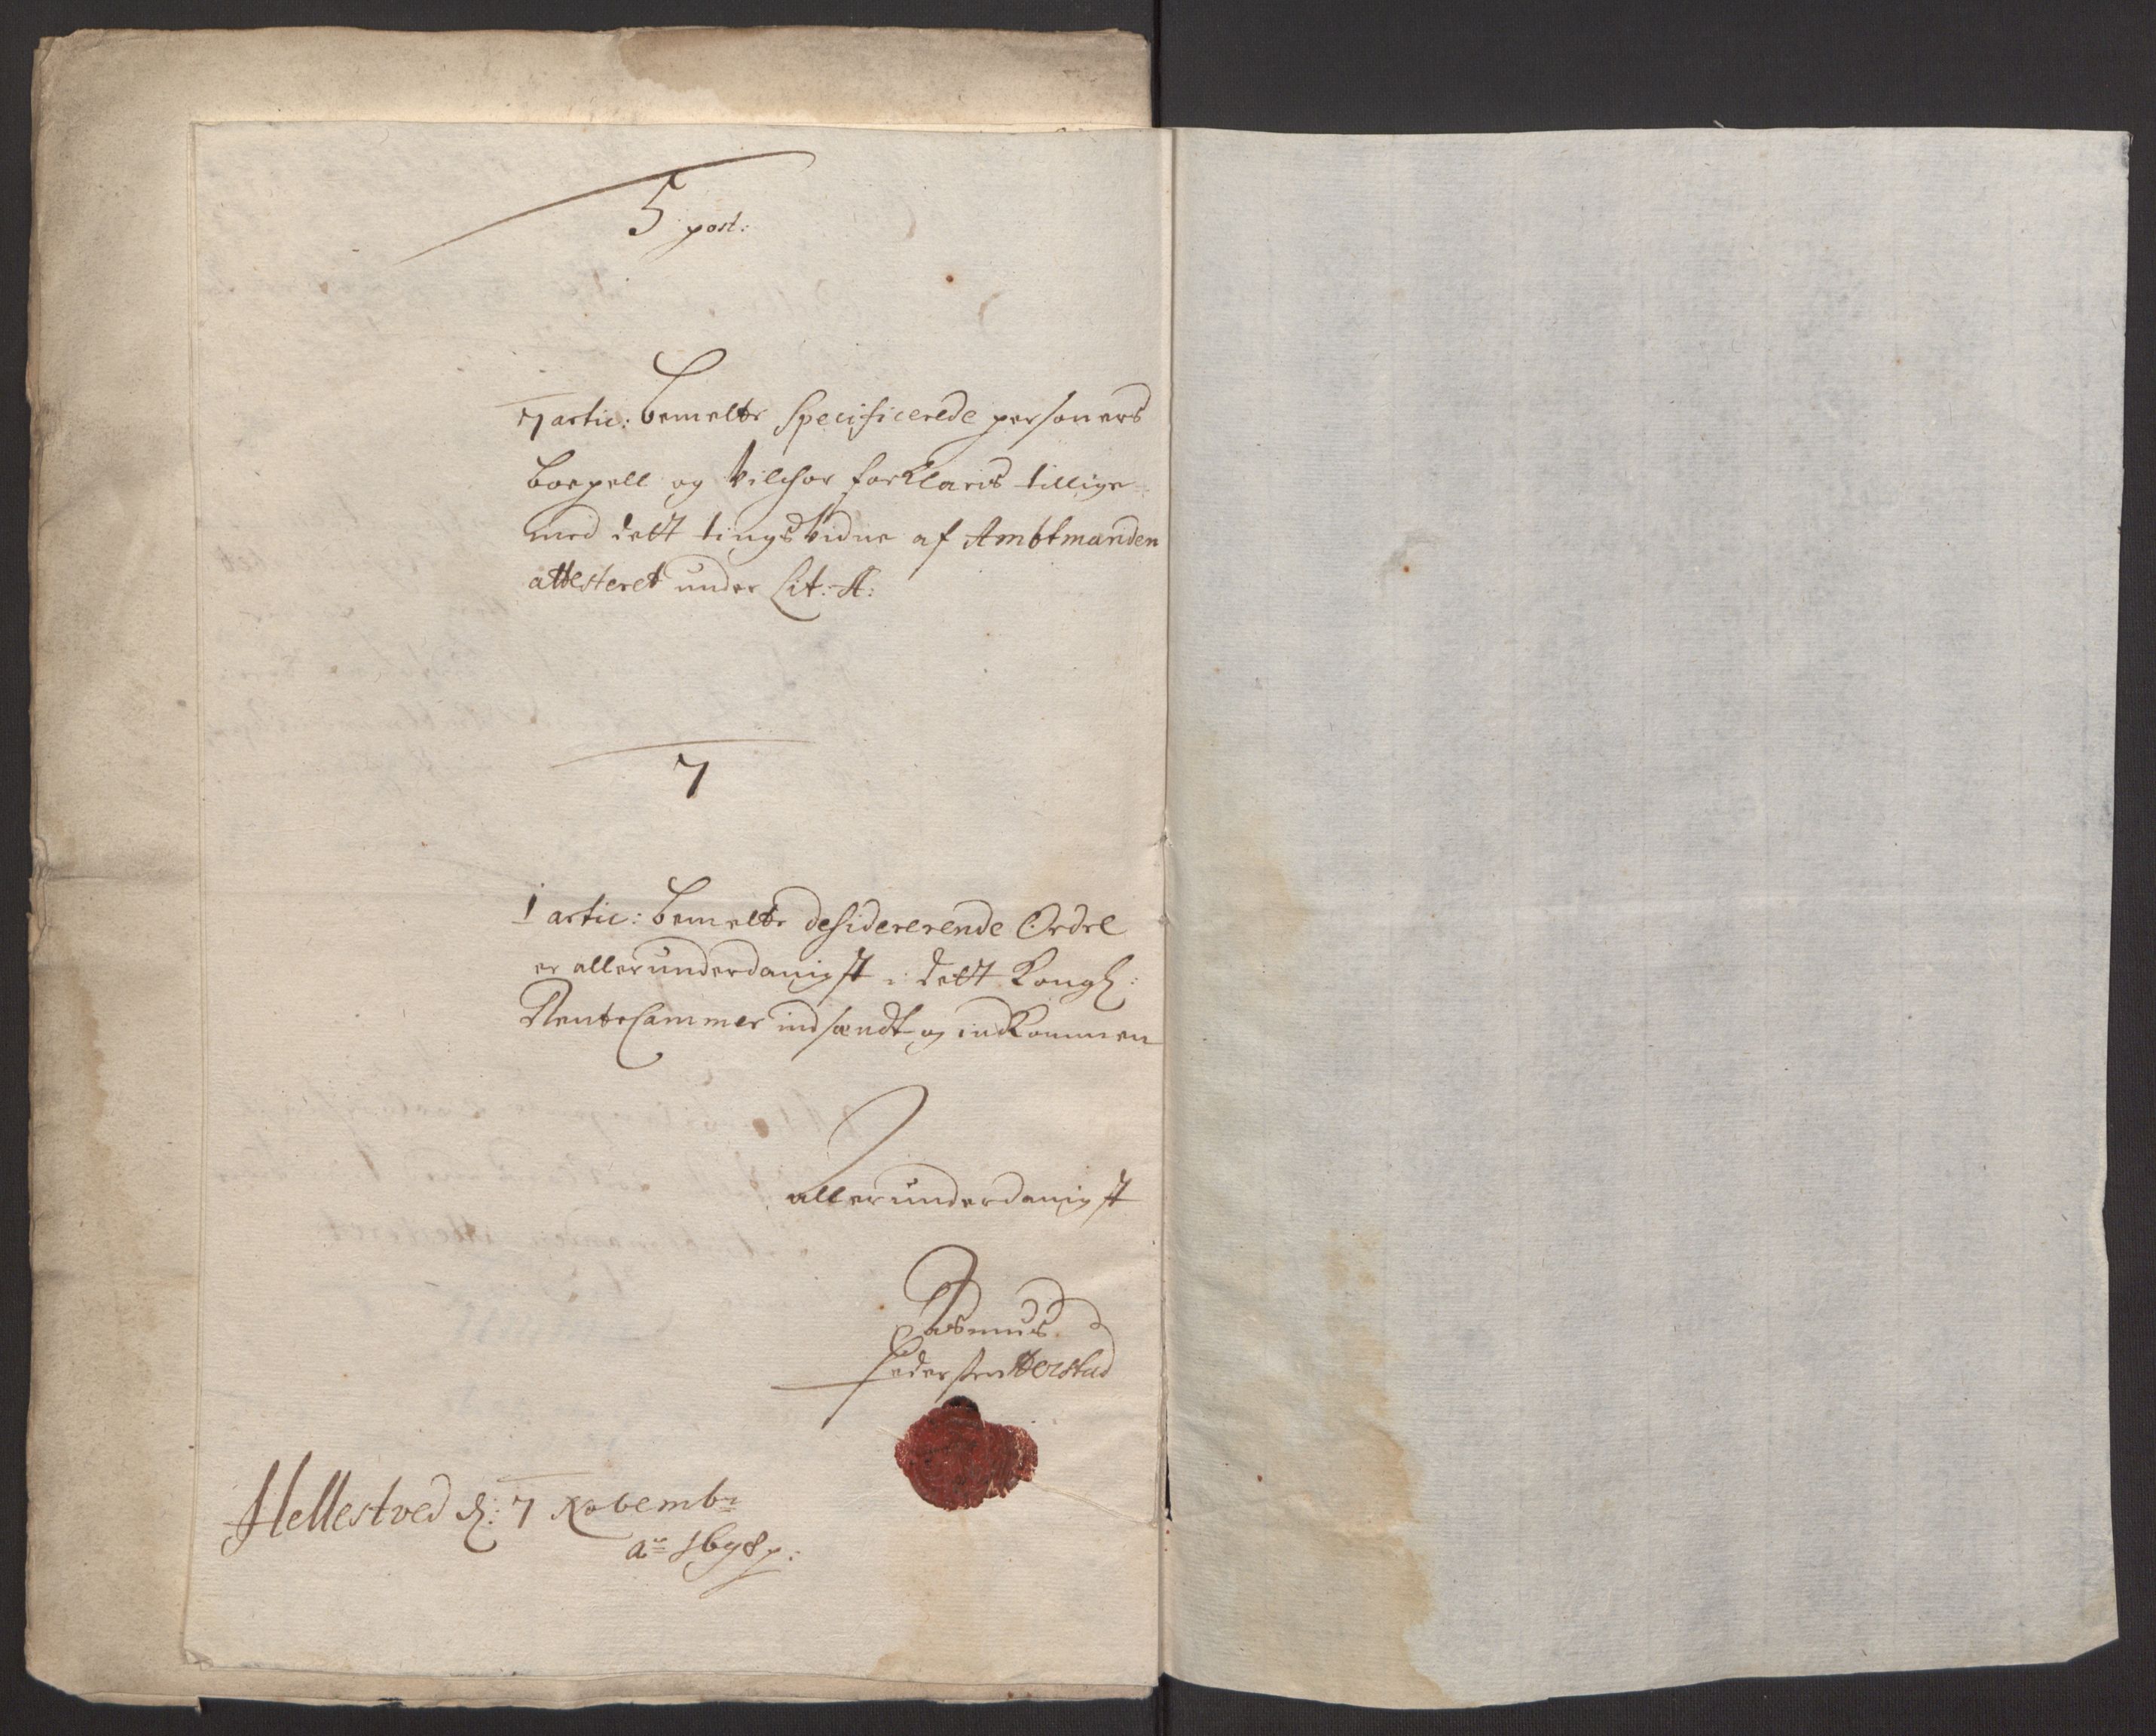 5 post:
7 artic: bemelte Specificerede personers
boepell og vilchor forklaris tillige
med dett tingsvidne af Ambtmanden
attesteret under Lit: A:
7
1 artic: bemelte desidererende Ordre
er allerunderdanigst i dett Kongl:
RenteCammer indsendt og indkommen
allerunderdanigst
Rasmus
Pedersen
Hellestved d: 7 Novembr
ao 1698